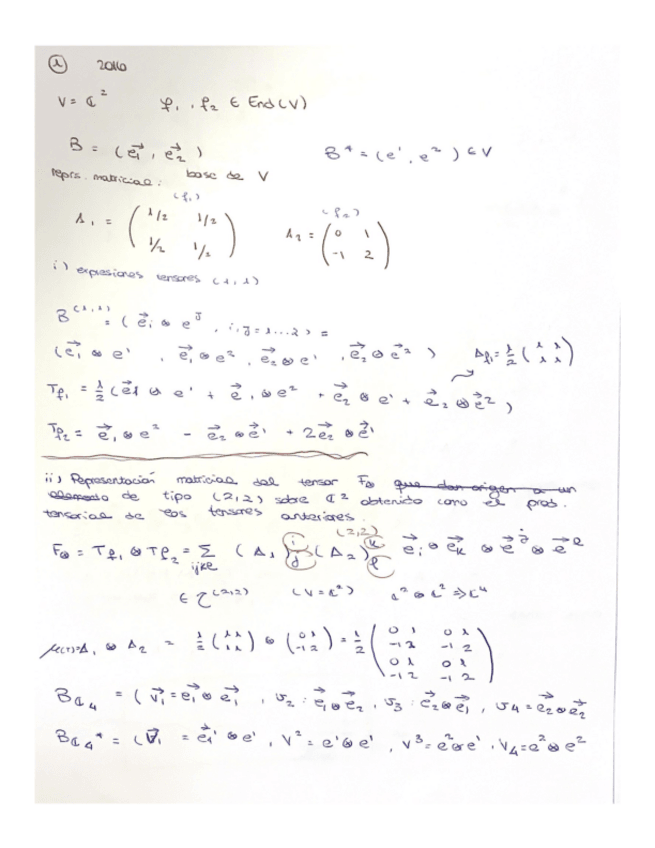 ① 2016
V = ℂ² φ₁, φ₂ ∈ End(V)
B = (e⃗₁, e⃗₂) B* = (e¹, e²) ∈ V
reprs. matricial: base de V
(φ₁) (φ₂)
A₁ = ( 1/2 1/2 A₂ = ( 0 1
1/2 1/2 ) -1 2 )
i) expresiones tensores (1,1)
B⁽¹,¹⁾ = (e⃗ᵢ ⊗ eʲ, i,j=1...2) =
(e⃗₁ ⊗ e¹, e⃗₁ ⊗ e², e⃗₂ ⊗ e¹, e⃗₂ ⊗ e⃗²) Aφ₁ = 1/2 ( 1 1
1 1 )
Tφ₁ = 1/2 (e⃗1 ⊗ e¹ + e⃗₁ ⊗ e² + e⃗₂ ⊗ e¹ + e⃗₂ ⊗ e⃗²)
Tφ₂ = e⃗₁ ⊗ e² - e⃗₂ ⊗ e⃗¹ + 2e⃗₂ ⊗ e⃗
ii) Representación matricial del tensor F⊗ que dan origen a un
elemento de tipo (2,2) sobre ℂ² obtenido como el prod.
tensorial de los tensores anteriores.
(2,2)
F⊗ = Tφ₁ ⊗ Tφ₂ = Σ (A₁)ⁱⱼ (A₂)ᵏℓ e⃗ᵢ ⊗ e⃗ₖ ⊗ e⃗ʲ ⊗ e⃗ˡ
ijkℓ
∈ τ⁽²,²⁾ (V=ℂ²) ℂ² ⊗ ℂ² ⇒ ℂ⁴
μ(T)=A₁ ⊗ A₂ = 1/2 ( 1 1 ⊗ ( 0 1 = 1/2 ( 0 1 0 1
1 1 ) -1 2 ) -1 2 -1 2
0 1 0 1
-1 2 -1 2 )
Bℂ₄ = (v⃗₁ = e⃗₁ ⊗ e⃗₁, v₂ : e⃗₁ ⊗ e⃗₂, v₃ : e⃗₂ ⊗ e⃗₁, v₄ = e⃗₂ ⊗ e⃗₂
Bℂ₄* = (v⃗₁ = e⃗¹ ⊗ e¹, v² = e¹ ⊗ e¹, v³ = e² ⊗ e¹, v₄ = e² ⊗ e²